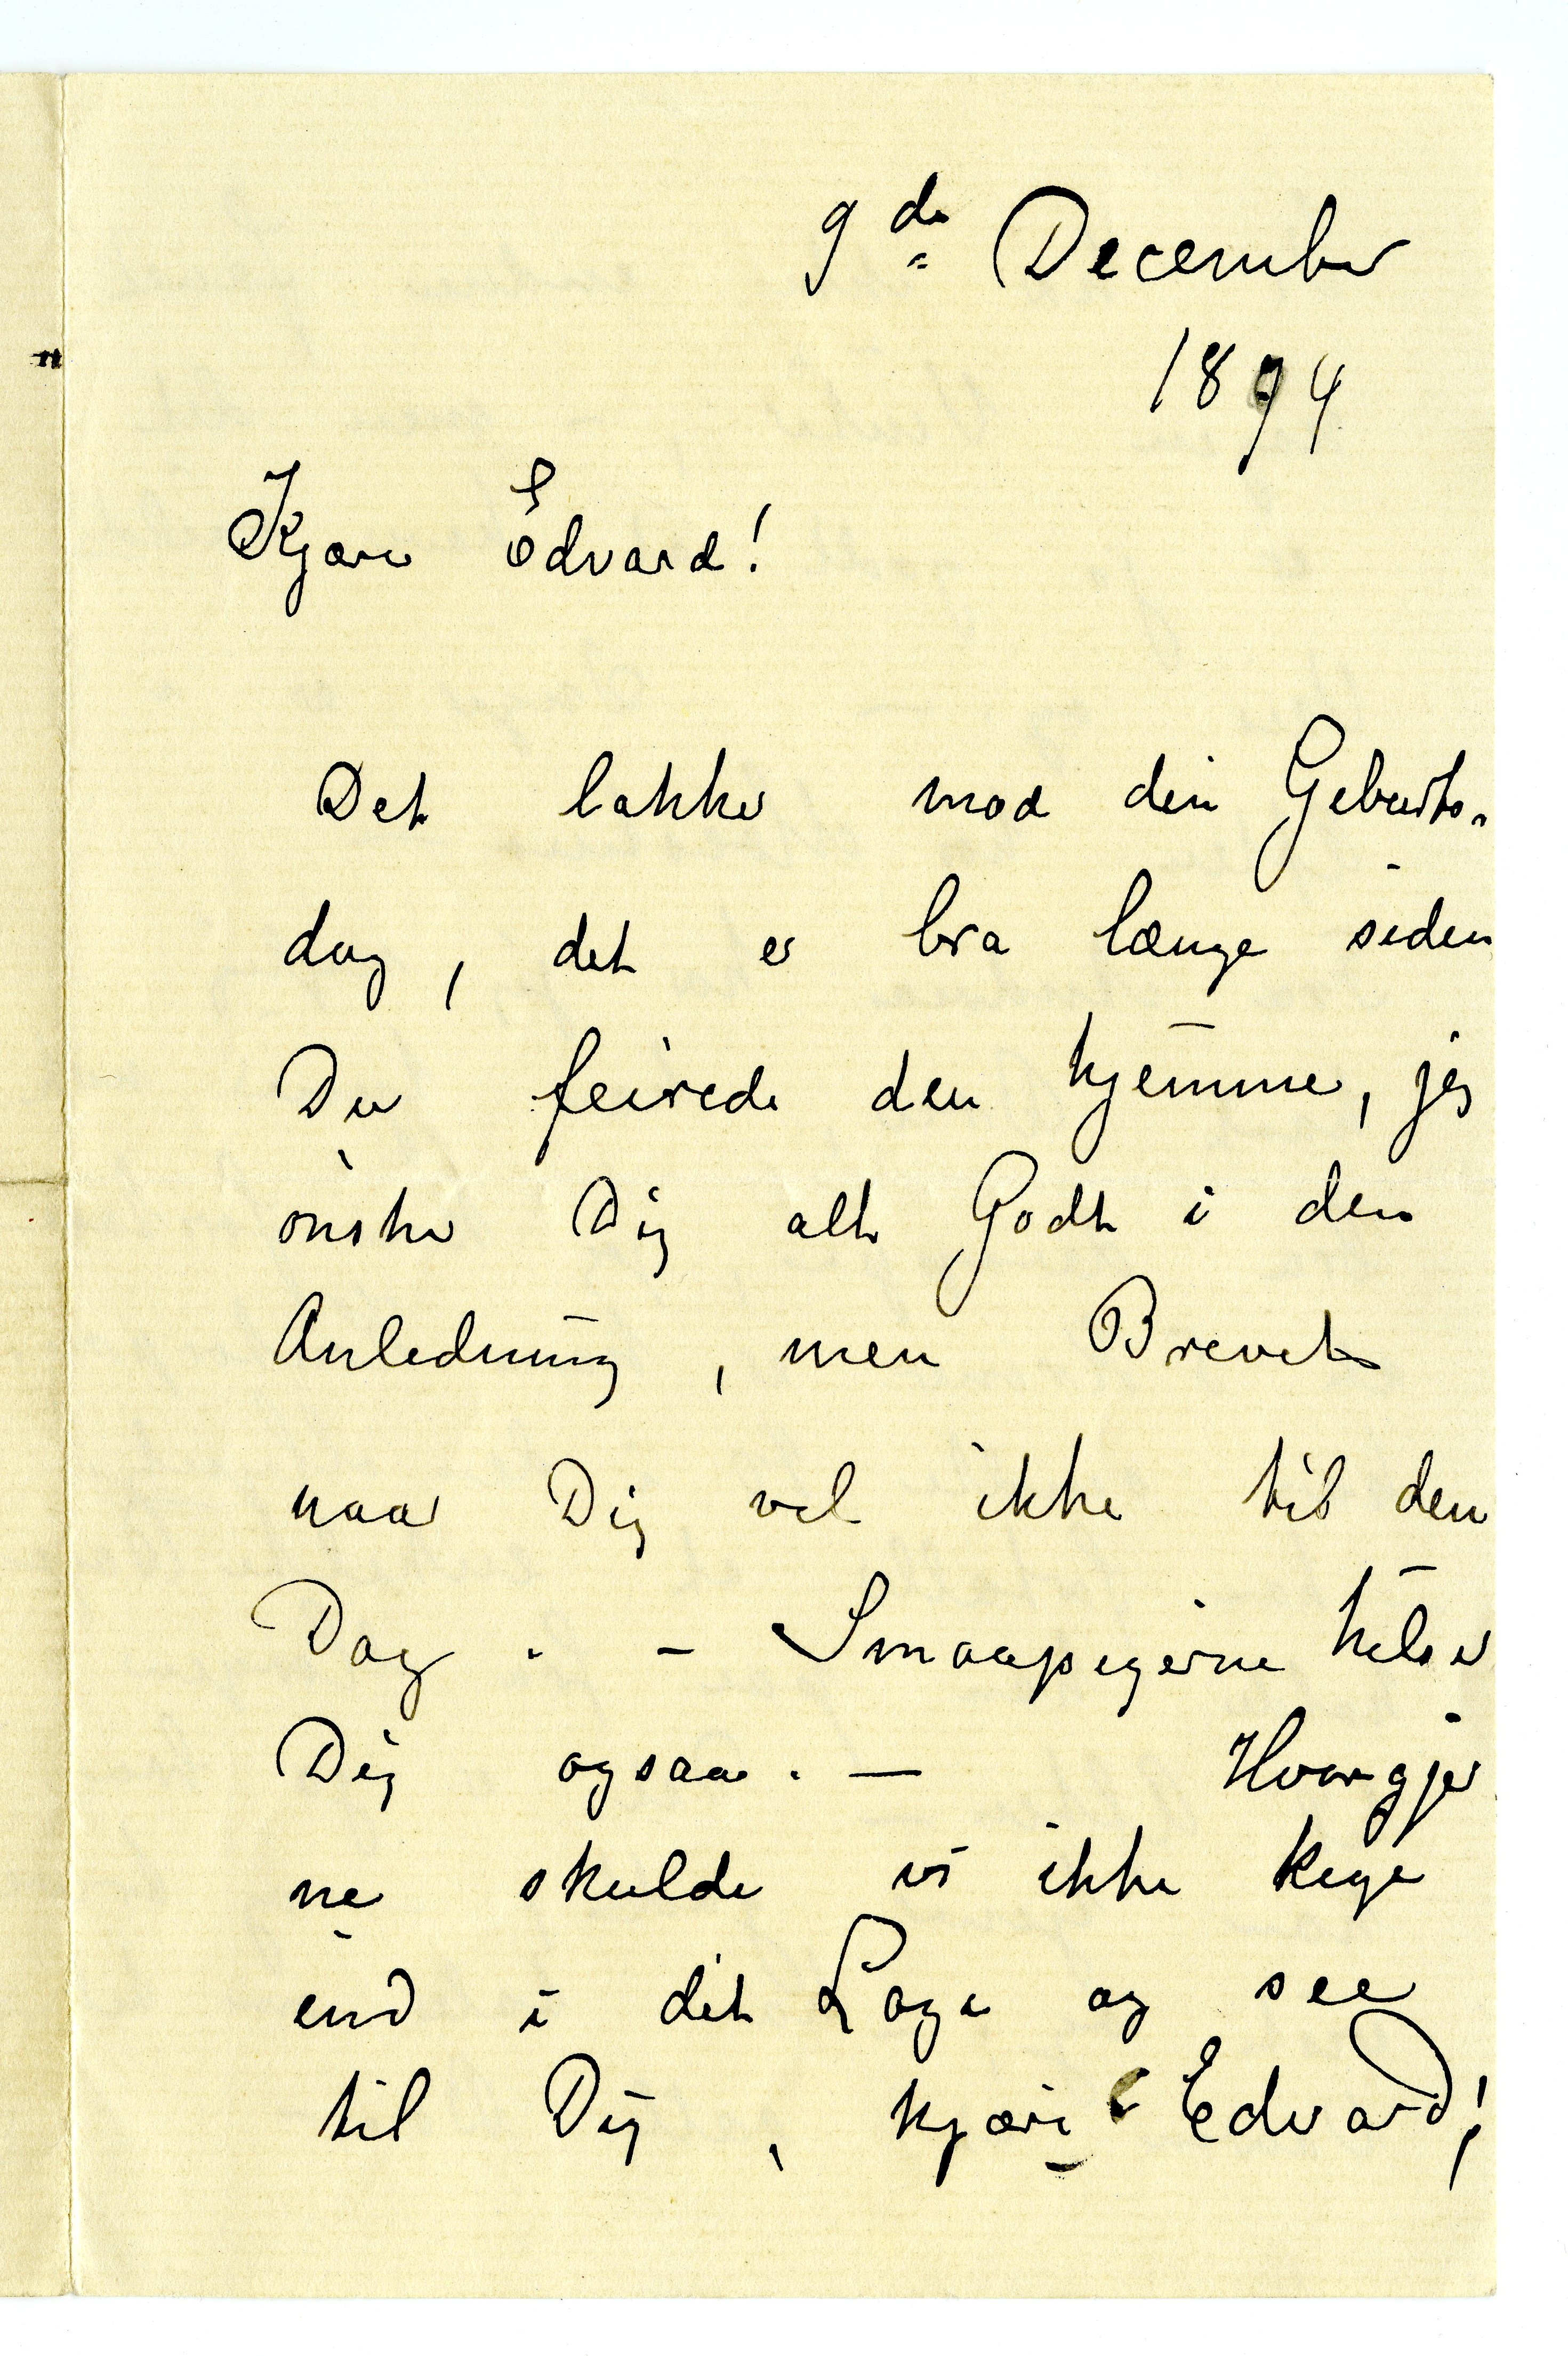 9de December
1894
Kjære Edvard!
Det lakker mod din Geburts-
dag, det er bra længe siden
Du feirede den hjemme, jeg
ønsker Dig alt Godt i den
Anledning, men Brevet
naar Dig vel ikke til den
Dag. – Smaapigerne hilser
Dig ogsaa. — Hvor gjer
ne skulde vi ikke kige
ind i dit Loge og see
til Dig, kjære Edvard!